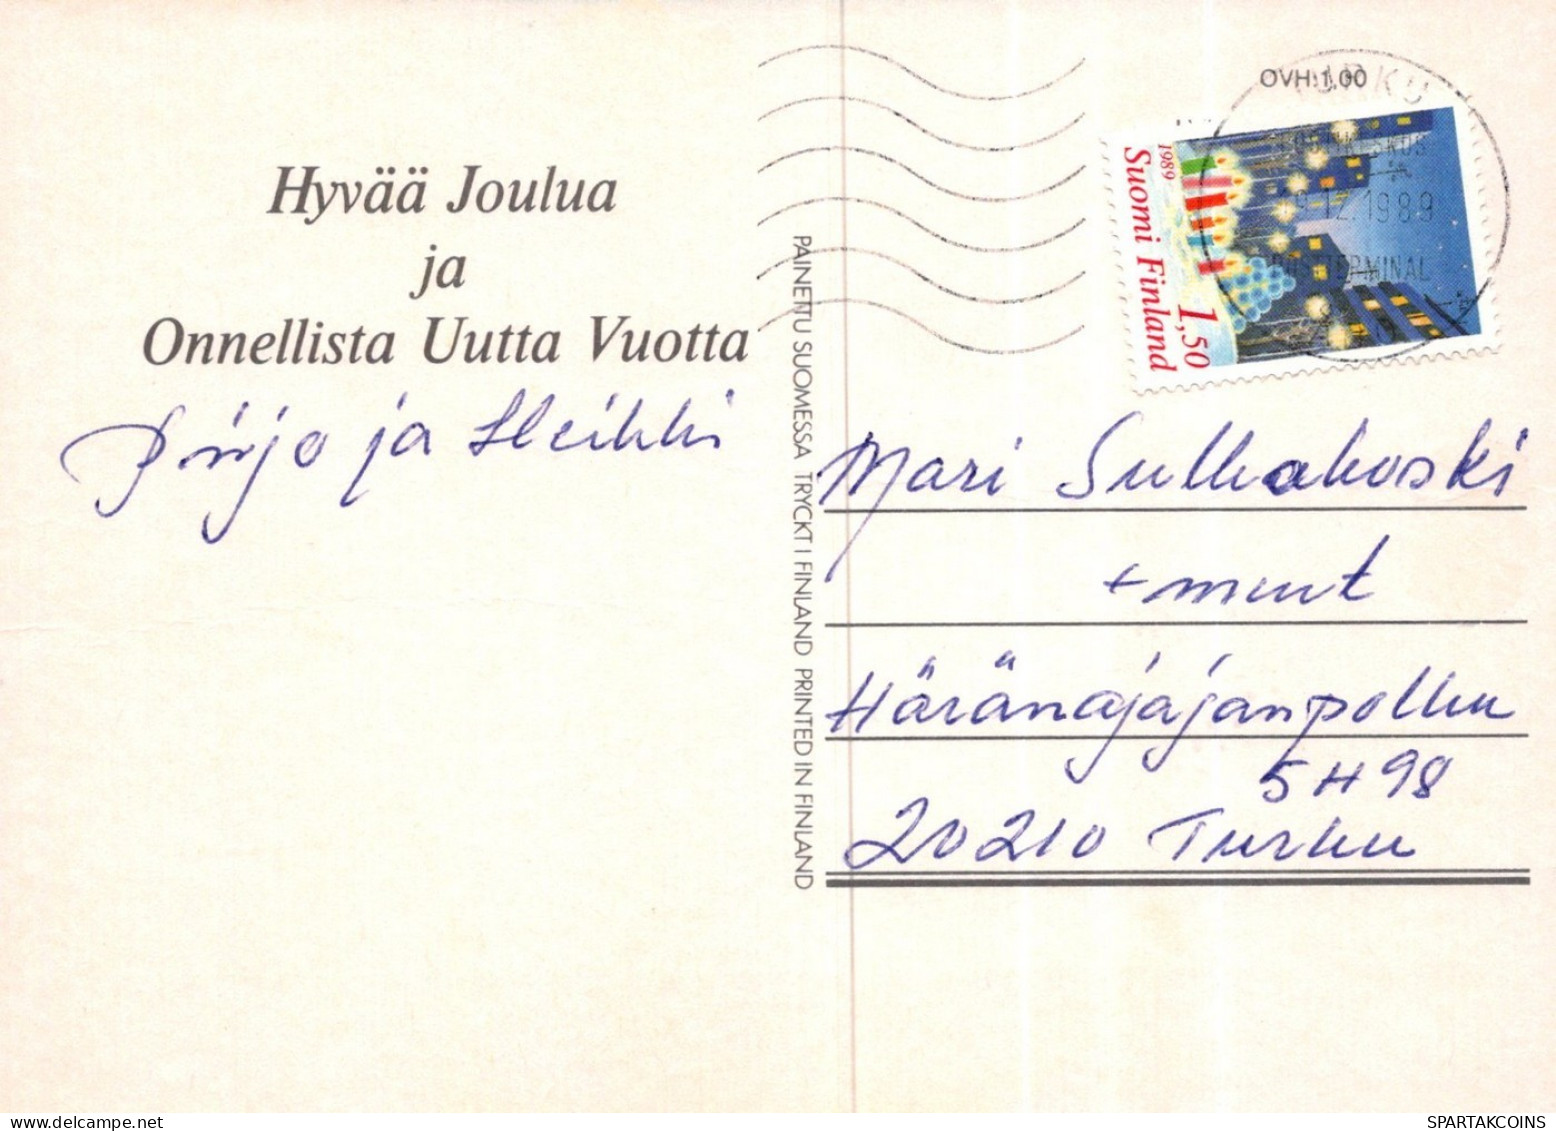 Hyvää Joulua
ja
Onnellista Uutta Vuotta
Pirjo ja Heikki
PAINETTU SUOMESSA TRYCKT I FINLAND PRINTED IN FINLAND
OVH:1,00
TURKU
12.1989
TERMINAL
1989
Suomi Finland
1,50
Mari Sulkakoski
+ muut
Häränajajanpolku
5 H 98
20210 Turku
SPARTAKCOINS